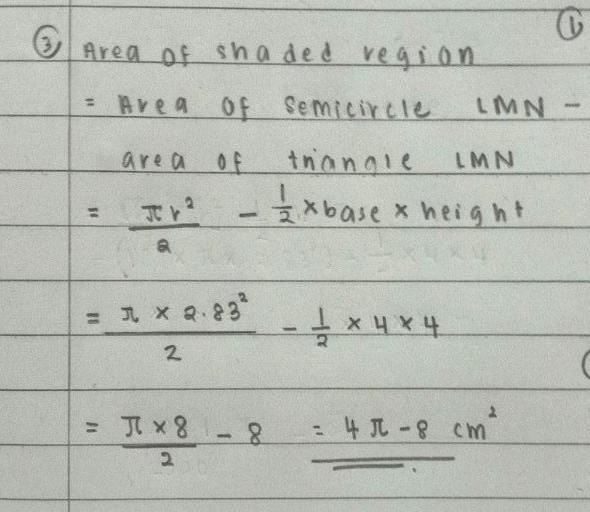 ①
③ Area of shaded region
= Area of semicircle LMN -
area of triangle LMN
= πr²/2 - 1/2 × base × height
= π × 2.83²/2 - 1/2 × 4 × 4
= π × 8/2 - 8 = 4π - 8 cm²